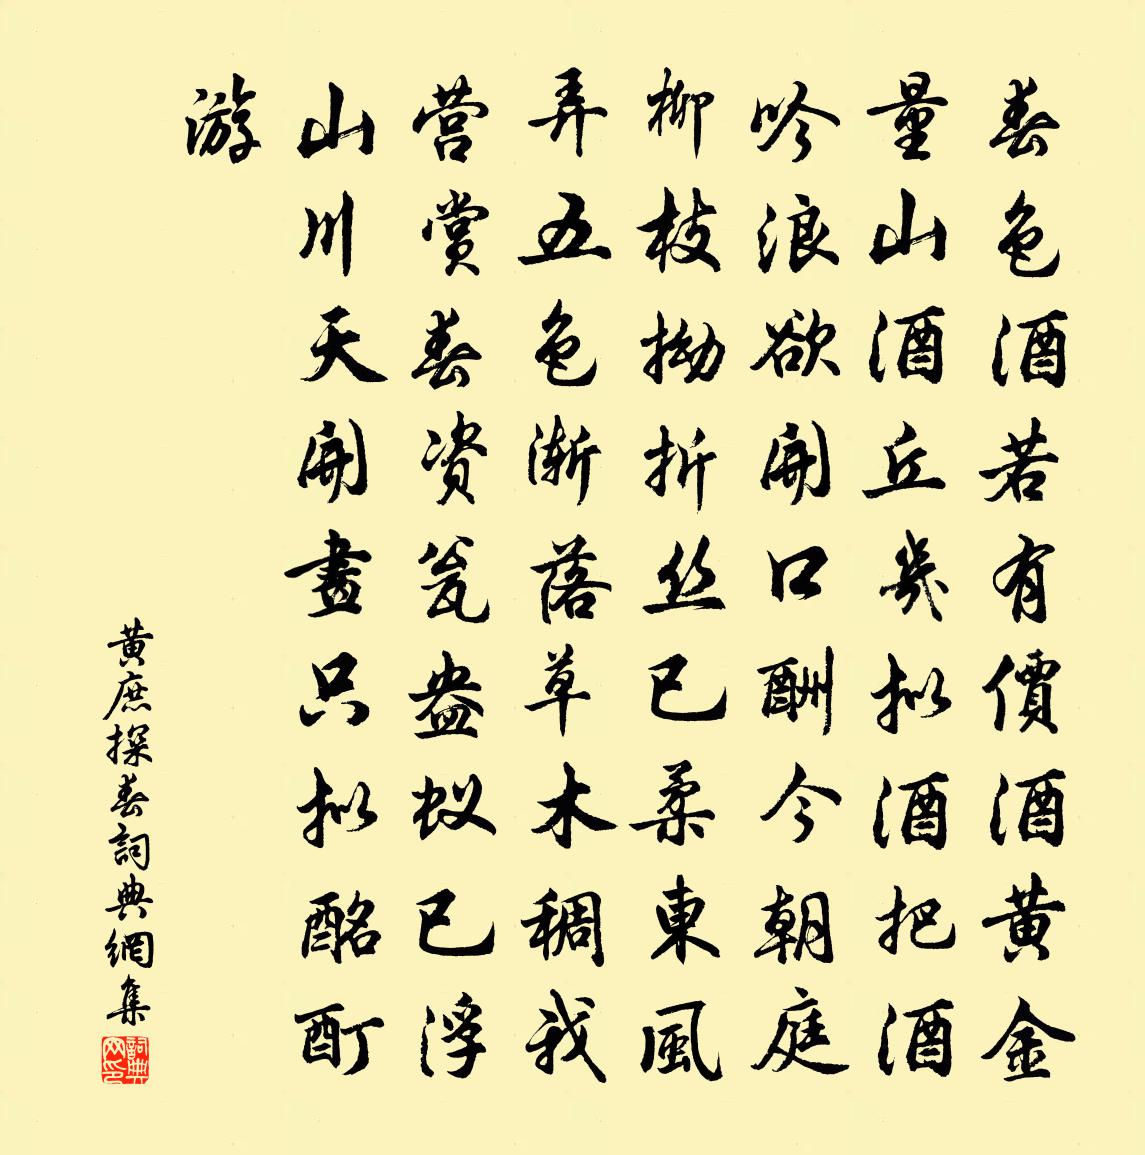 春色酒若有價酒黄金
量山酒丘幾拟酒把酒
吟浪欲開口酬今朝庭
柳枝拗折丝已柔東風
弄五色渐落草木稠我
营赏春资瓮盎蚁已浮
山川天開畫只拟酩酊
游
黄庶探春詞典網集
詞典网印